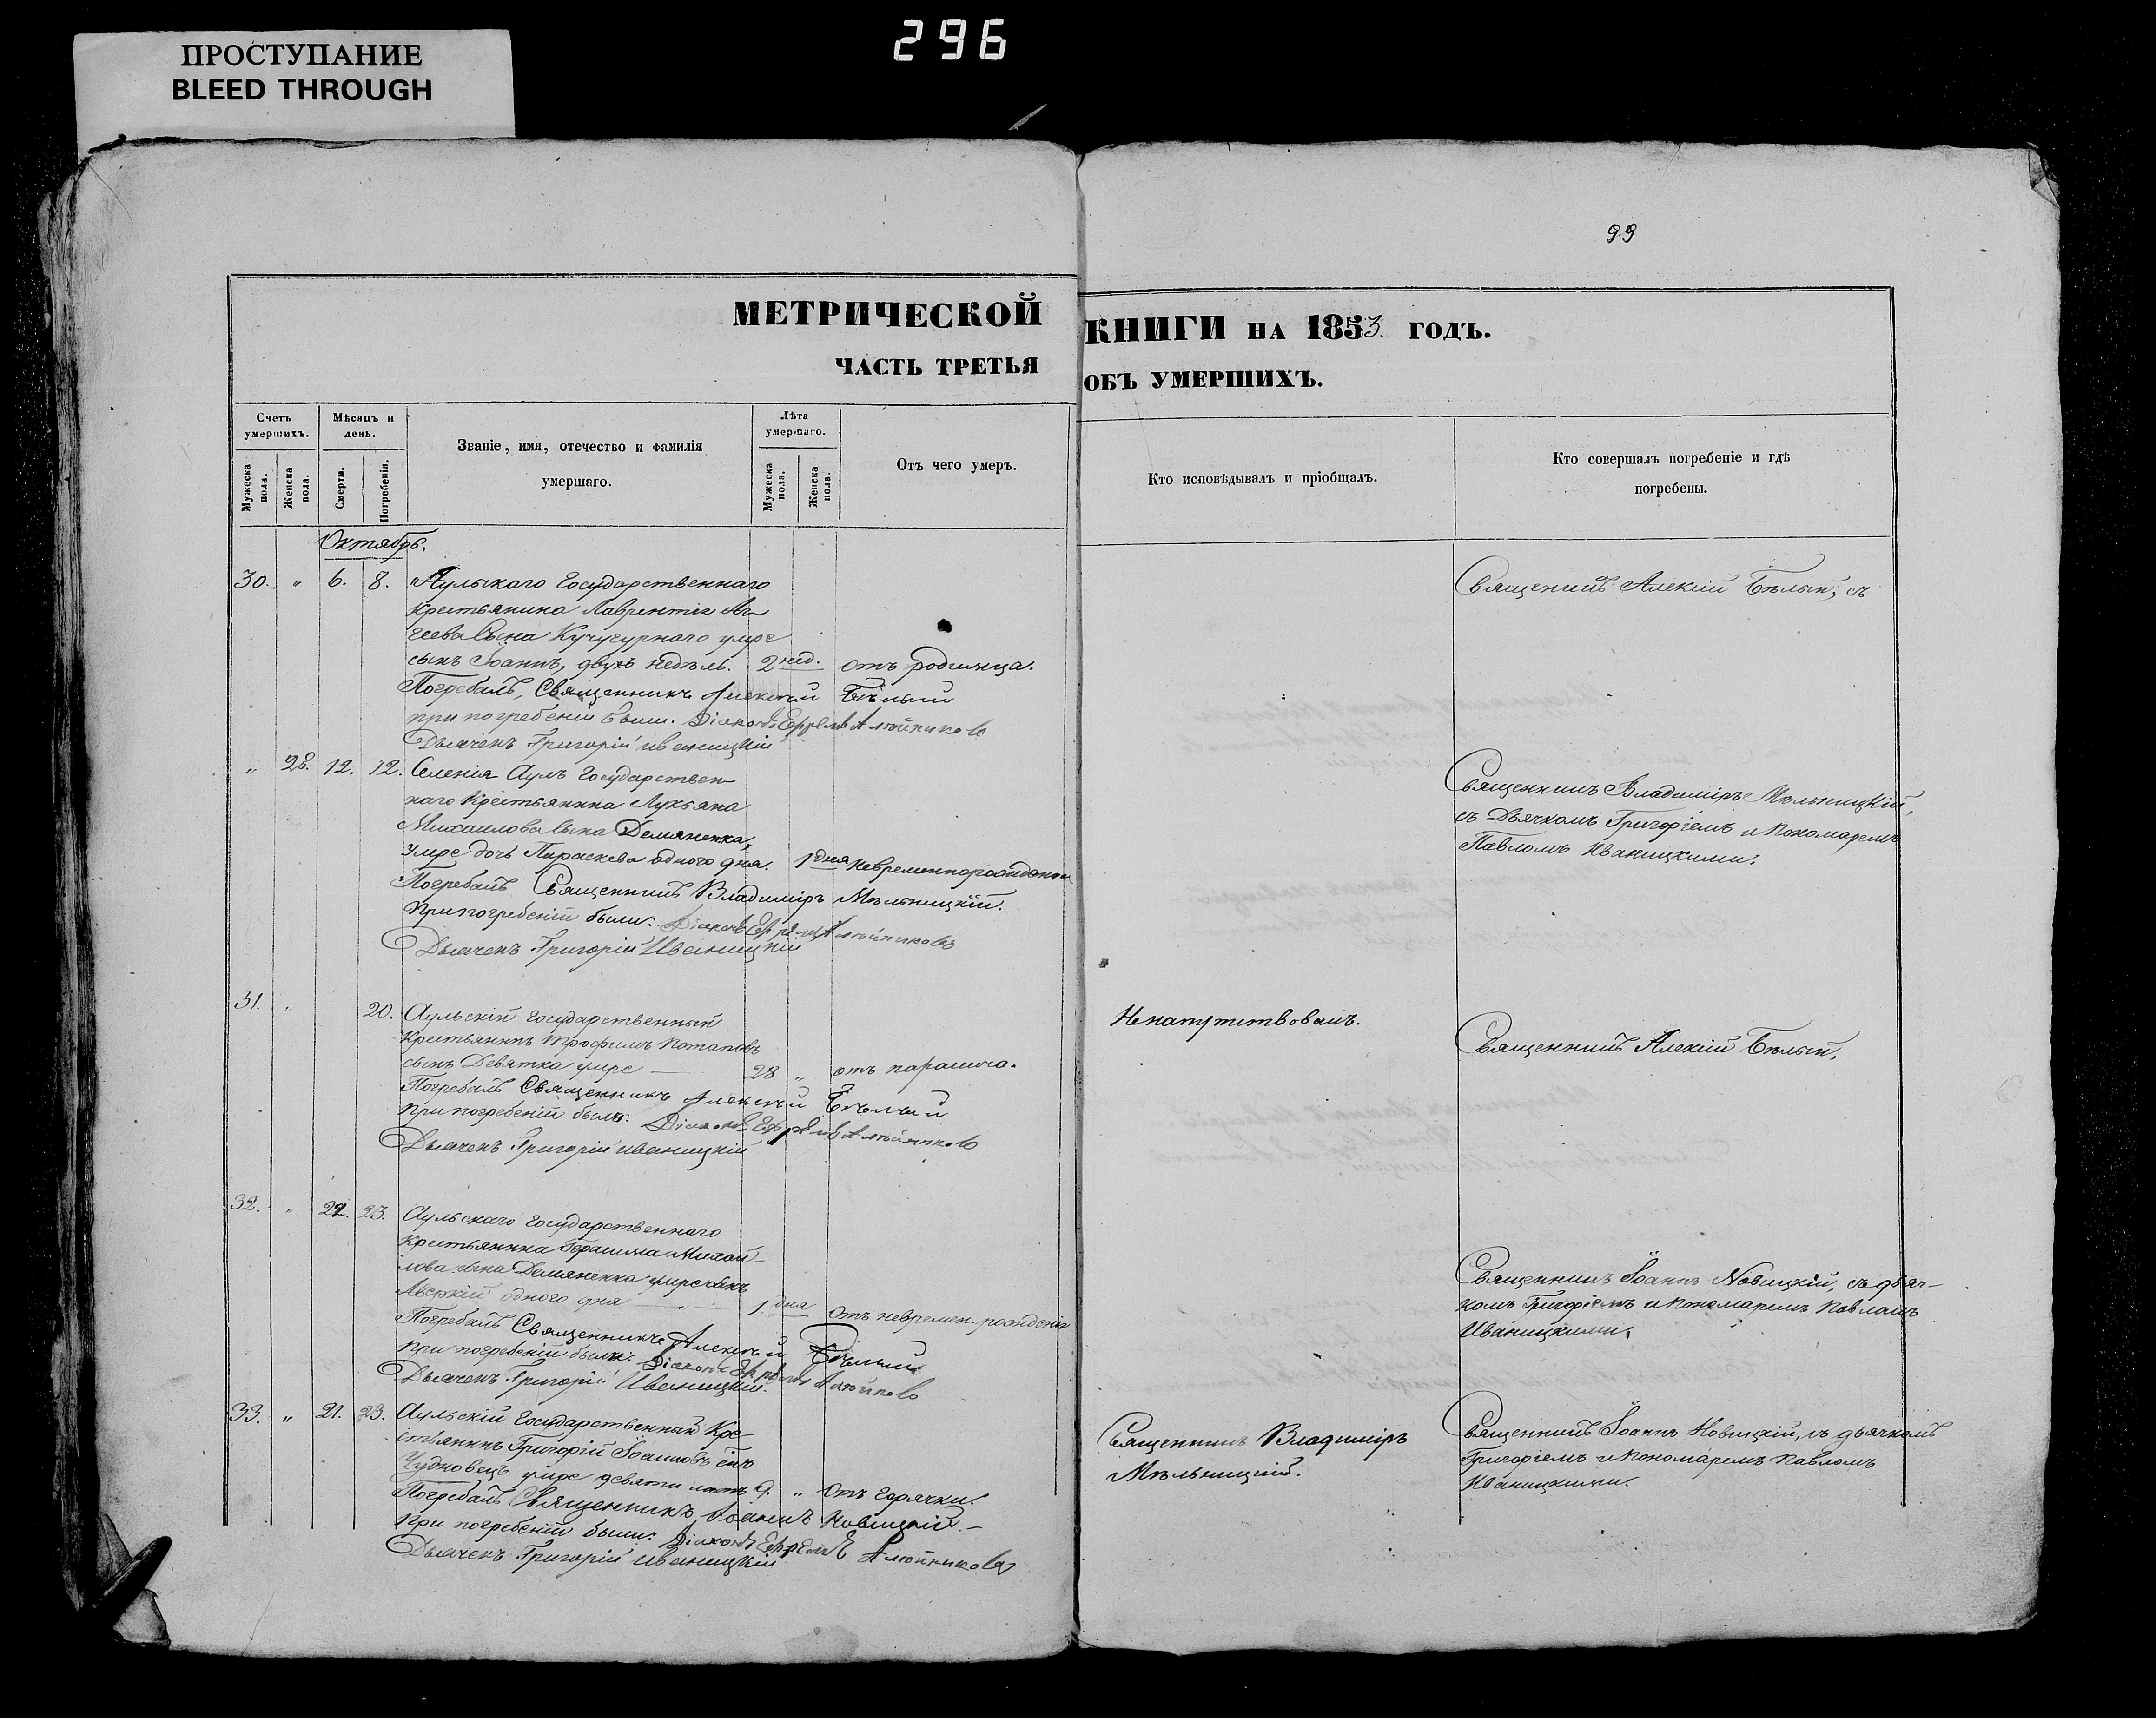 ПРОСТУПАНИЕ
BLEED THROUGH
296
99
МЕТРИЧЕСКОЙ КНИГИ НА 1853. ГОДЪ.
ЧАСТЬ ТРЕТЬЯ ОБЪ УМЕРШИХЪ.
Счетъ умершихъ.
Мѣсяцъ и день.
Званіе, имя, отечество и фамилія умершаго.
Лѣта умершаго.
Отъ чего умеръ.
Кто исповѣдывалъ и пріобщалъ.
Кто совершалъ погребеніе и гдѣ погребены.
Мужеска пола.
Женска пола.
Смерти.
Погребенія.
Мужеска пола.
Женска пола.
Октябрь.
30. " 6. 8. Аульскаго Государственнаго
крестьянина Лаврентія Аг
геева Сына Кучугурнаго умре
сынъ Іоаннъ, двухъ недѣль. 2 нед. отъ родимца.
Погребалъ, Священникъ Алексій Бѣлый
при погребеніи были. Діаконъ Ефремъ Алтойниковъ
Дьячекъ Григорій Иваницкій
Священникъ Алексій Бѣлый, съ
" 28. 12. 12. Селенія Аулъ Государствен
наго Крестьянина Лукьяна
Михаилова сына Демяненка,
умре дочь Параскева одного дня. 1 дня
Погребалъ Священникъ Владиміръ Мѣльницкій.
При погребеніи были: Діаконъ Ефремъ
Дьячекъ Григорій Иваницкій
Священникъ Владиміръ Мѣльницкій,
съ Дьячкомъ Григоріемъ и Пономаремъ
Павломъ Иваницкими.
31. " 20. Аульскій Государственный
Крестьянинъ Трофимъ Потаповъ
сынъ Девятка умре — 28 " отъ паралича.
Погребалъ Священникъ Алексій Бѣлый
При погребеніи были: Діаконъ Ефремъ
Дьячекъ Григорій Иваницкій
Ненапутствованъ.
Священникъ Алексій Бѣлый,
32. " 22. 23. Аульскаго Государственнаго
Крестьянина Герасима Михай-
лова сына Демяненка умре сынъ
одного дня — 1. дня отъ невремен. рожденія
Погребалъ Священникъ Алексій Бѣлый
При погребеніи были: Діаконъ Ефремъ
Дьячекъ Григорій Иваницкій.
Священникъ Іоаннъ Новицкій, съ дьяч-
комъ Григоріемъ и пономаремъ Павломъ
Иваницкими.
33. " 21. 23. Аульскій Государственный Кре-
стьянинъ Григорій Іоанновъ сынъ
Чудновецъ умре девяти лѣтъ 9. " Отъ горячки.
Погребалъ Священникъ Іоаннъ Новицкій.—
При погребеніи были: Діаконъ Ефремъ
Дьячекъ Григорій Иваницкій
Священникъ Владиміръ
Мѣльницкій.
Священникъ Іоаннъ Новицкій, съ дьячкомъ
Григоріемъ и Пономаремъ Павломъ
Иваницкими.